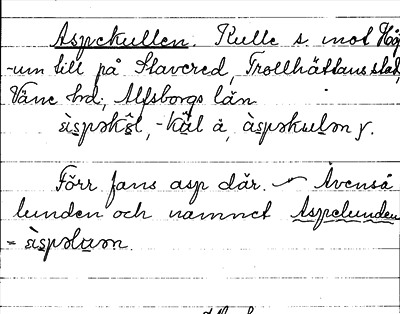 Aspekullen. Kulle s. mot Hög
-um till på Stavered, Trollhättans stad,
Väne hd., Älfsborgs län
àspəkl, -kl å, àspəkulən y.
Förr fans asp där. – Även så
lunden och namnet Aspelunden
- àspəluən.